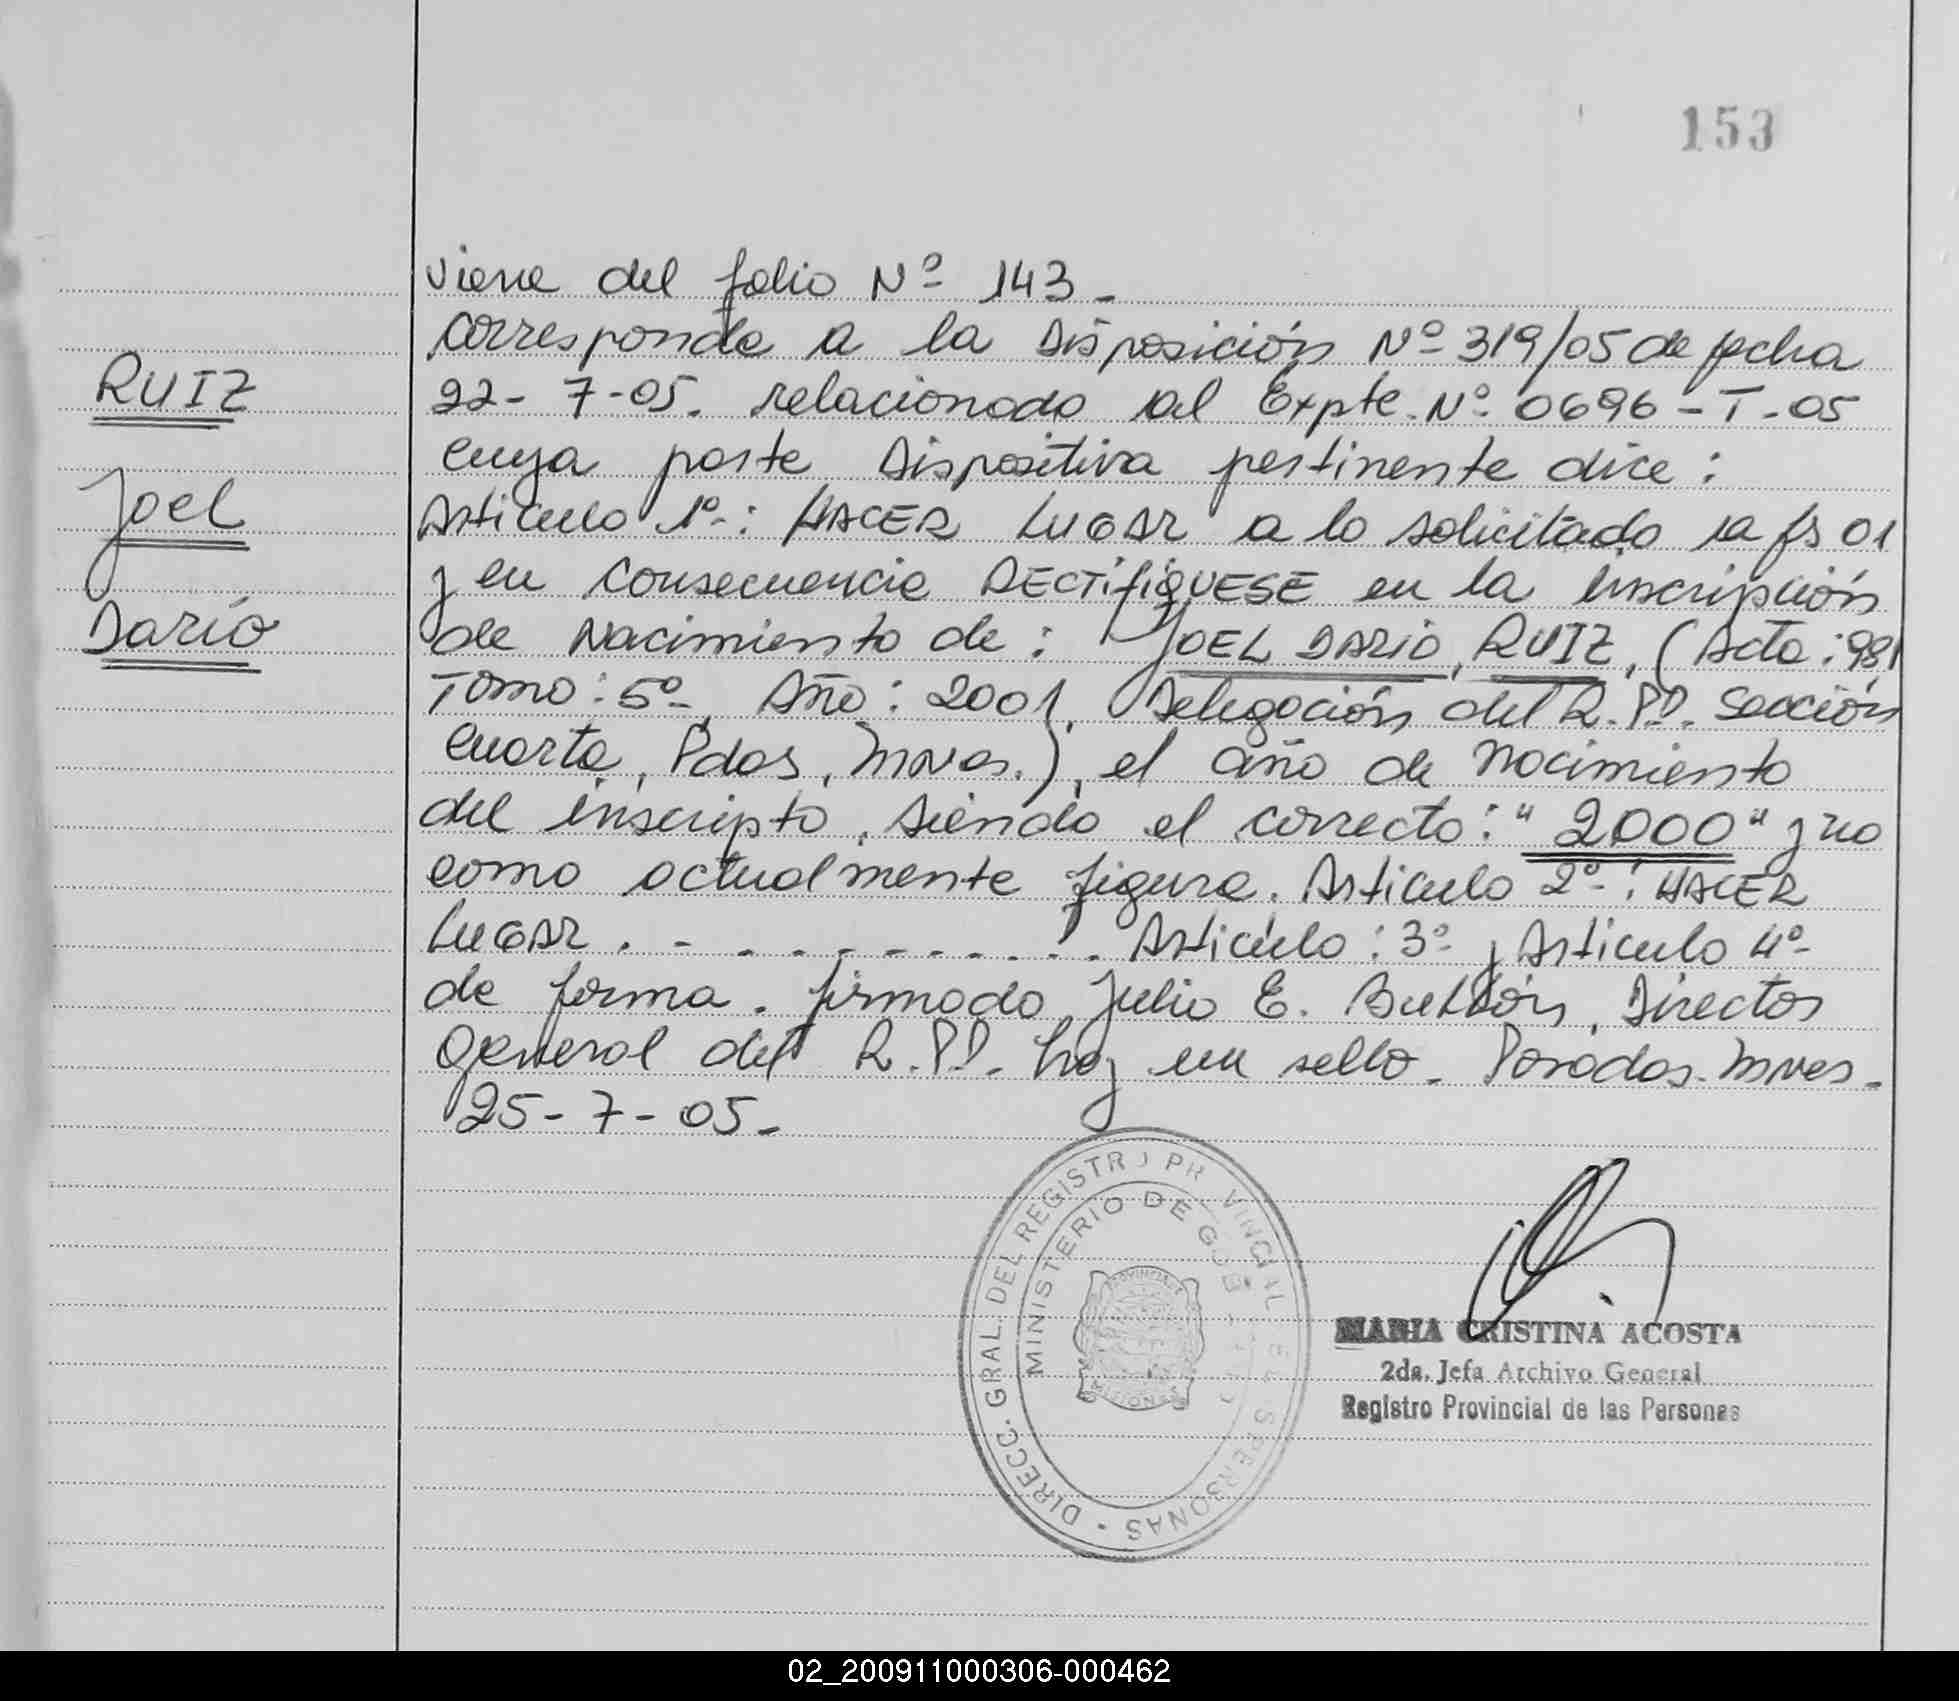 153
viene del folio Nº 143-
Corresponde a la Disposición Nº 319/05 de fecha
RUIZ
22-7-05. relacionado al Expte. Nº 0696-T-05
cuya parte Dispositiva pertinente dice:
Joel
Articulo 1º-: HACER LUGAR a lo solicitado a fs 01
y en consecuencia RECTIFIQUESE en la inscripción
Darío
de Nacimiento de: JOEL DARIO, RUIZ, (Acta: 981
Tomo: 5º-, Año: 2001, Delegación del R.P.P. Sección
Cuarta, Pdas, Mnes.), el año de nacimiento
del inscripto, siendo el correcto: "2000" y no
como actualmente figura. Articulo 2º-: HACER
LUGAR . - - - - - - - - . . Articulo: 3º y Articulo 4º-
de forma. firmado Julio E. Director
General del R.P.P. hay un sello. Posadas. Mnes-
25-7-05-
DIRECC. GRAL. DEL REGISTRO PROVINCIAL DE LAS PERSONAS -
MINISTERIO DE GOBIERNO
PROVINCIA DE
MISIONES
MARIA CRISTINA ACOSTA
2da. Jefa Archivo General
Registro Provincial de las Personas
02_200911000306-000462